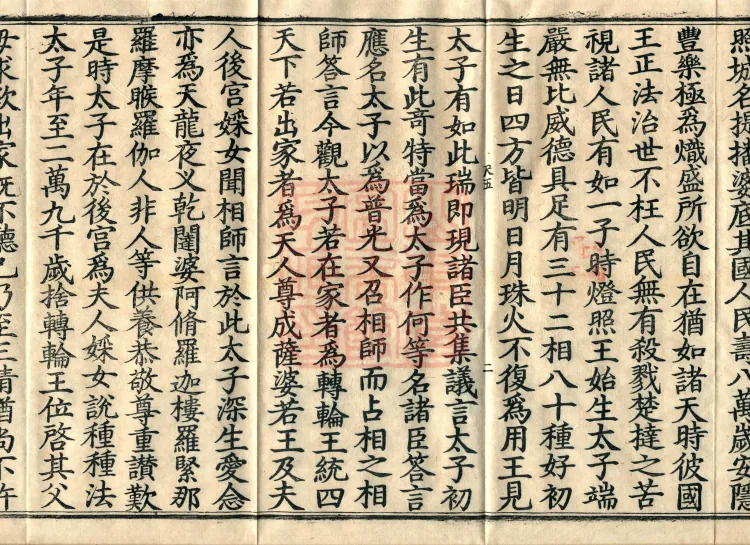 照城名提播婆底其國人民壽八萬歲安隱
豐樂極爲熾盛所欲自在猶如諸天時彼國
王正法治世不枉人民無有殺戮楚撻之苦
視諸人民有如一子時燈照王始生太子端
嚴無比威德具足有三十二相八十種好初
生之日四方皆明日月珠火不復爲用王見
二
太子有如此瑞即現諸臣共集議言太子初
生有此竒特當爲太子作何等名諸臣答言
應名太子以爲普光又召相師而占相之相
師答言今觀太子若在家者爲轉輪王統四
天下若出家者爲天人尊成薩婆若王及夫
人後宮婇女聞相師言於此太子深生愛念
亦爲天龍夜叉乾闥婆阿脩羅迦樓羅緊那
羅摩睺羅伽人非人等供養恭敬尊重讚歎
是時太子在於後宮爲夫人婇女說種種法
太子年至二萬九千歲捨轉輪王位啓其父
母求欲出家既不聽已乃至三請猶尚不許